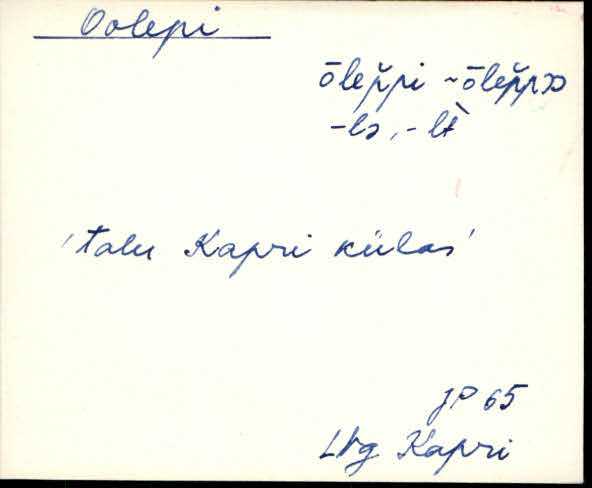 Oolepi
ōlep̆pi ~ ōlep̆pə
-lə, -lt̀
'talu Kapri külas'
JP 65
Lvg Kapri